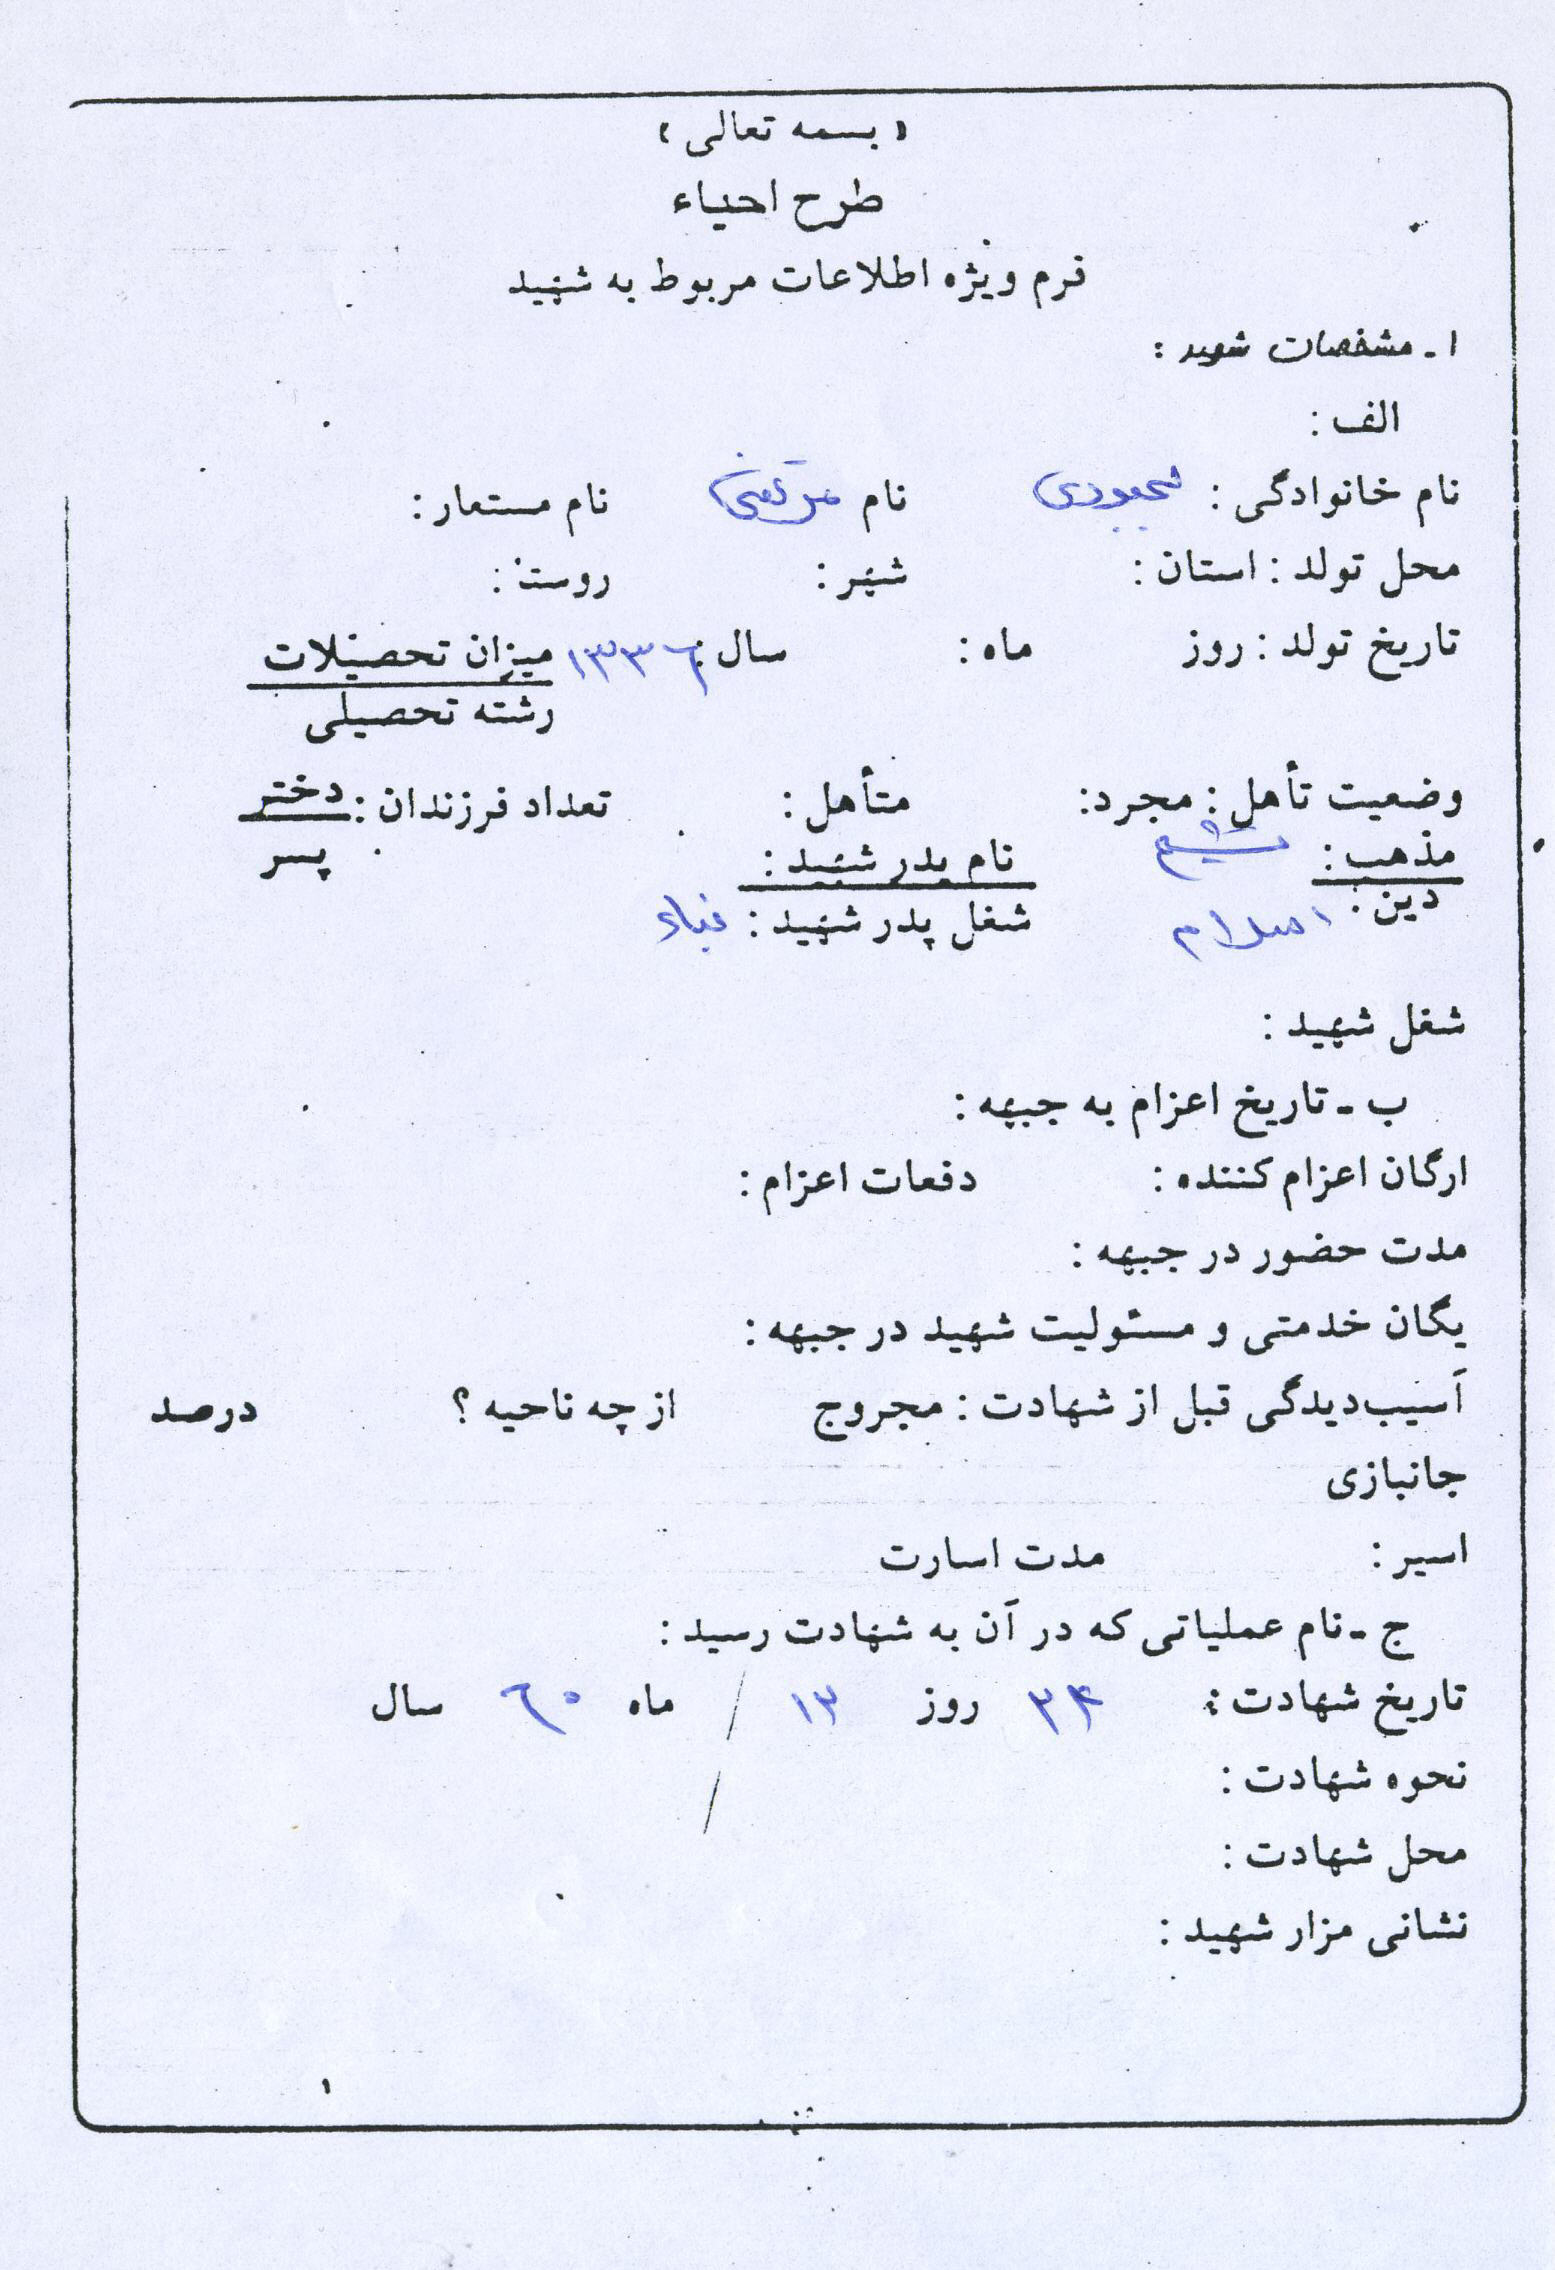 « بسمه تعالی »
طرح احیاء
فرم ویژه اطلاعات مربوط به شهید
۱ - مشخصات شهید :
الف :
نام خانوادگی : نام مرتضی نام مستعار :
محل تولد : استان : شهر : روستا :
تاریخ تولد : روز ماه : سال : ۱۳۳۶ میزان تحصیلات
رشته تحصیلی
وضعیت تأهل : مجرد : متأهل : تعداد فرزندان : دختر
پسر
مذهب : نام پدر شهید :
دین : اسلام شغل پدر شهید :
شغل شهید :
ب - تاریخ اعزام به جبهه :
ارگان اعزام کننده : دفعات اعزام :
مدت حضور در جبهه :
یگان خدمتی و مسئولیت شهید در جبهه :
آسیب‌دیدگی قبل از شهادت : مجروح از چه ناحیه ؟ درصد
جانبازی
اسیر : مدت اسارت
ج - نام عملیاتی که در آن به شهادت رسید :
تاریخ شهادت : ۳۴ روز ۱۳ / ماه ۶۰ سال
نحوه شهادت : /
محل شهادت :
نشانی مزار شهید :
۱